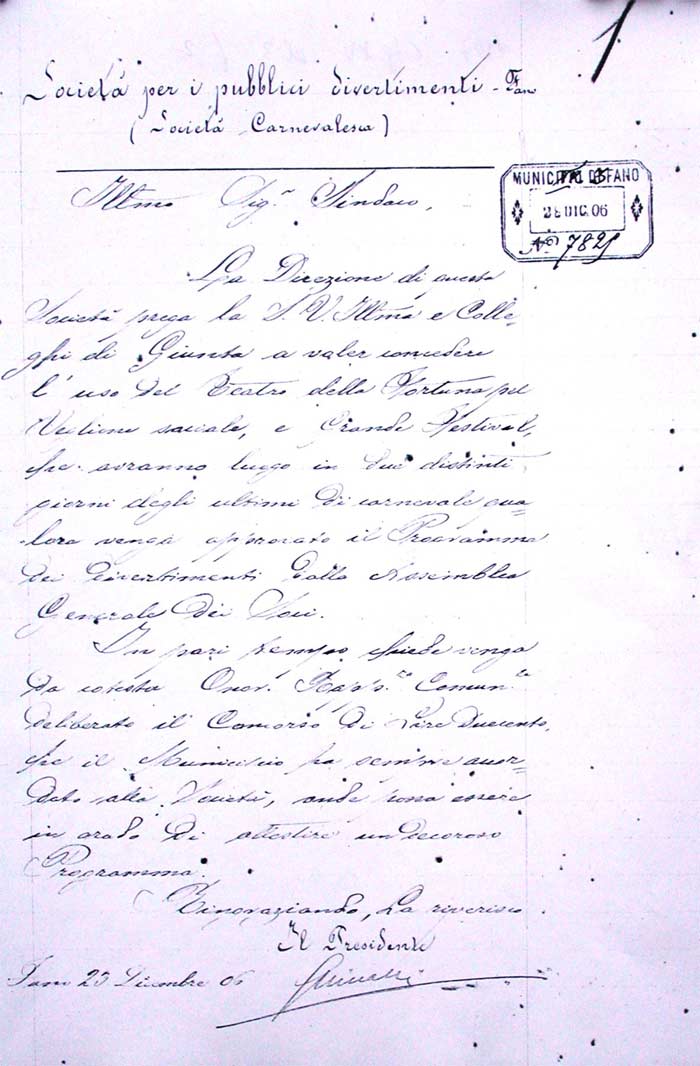 Società per i pubblici divertimenti - Fano
(Società Carnevalesca)
MUNICIPIO DI FANO
28 DIC. 06
No. 782
Illmo Sigr. Sindaco,
La Direzione di questa
Società prega la S. V. Illma e Colle-
ghi di Giunta a voler concedere
l'uso del Teatro della Fortuna pel
Veglione sociale, e Grande Festival,
che avranno luogo in due distinti
giorni degli ultimi di carnevale qua-
lora venga approvato il Programma
dei divertimenti dalla Assemblea
Generale dei Soci.
In pari tempo chiede venga
da cotesta Onor. Rapp.za Comun.le
deliberato il Concorso di Lire Duecento,
che il Municipio ha sempre accor-
dato alla Società, onde possa essere
in grado di allestire un decoroso
Programma.
Ringraziando, La riverisco
Il Presidente
Fano 23 Dicembre 06